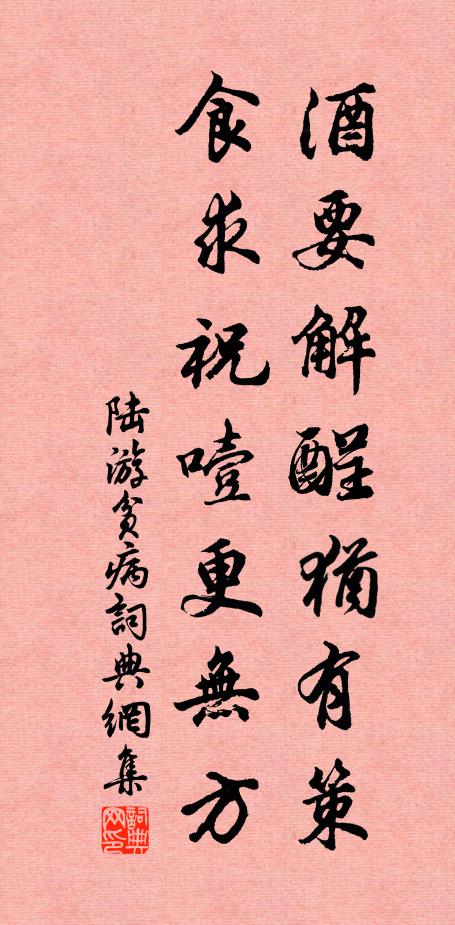 酒要解酲猶有策
食求祝噎更無方
陆游貧病詞典網集
詞典网印